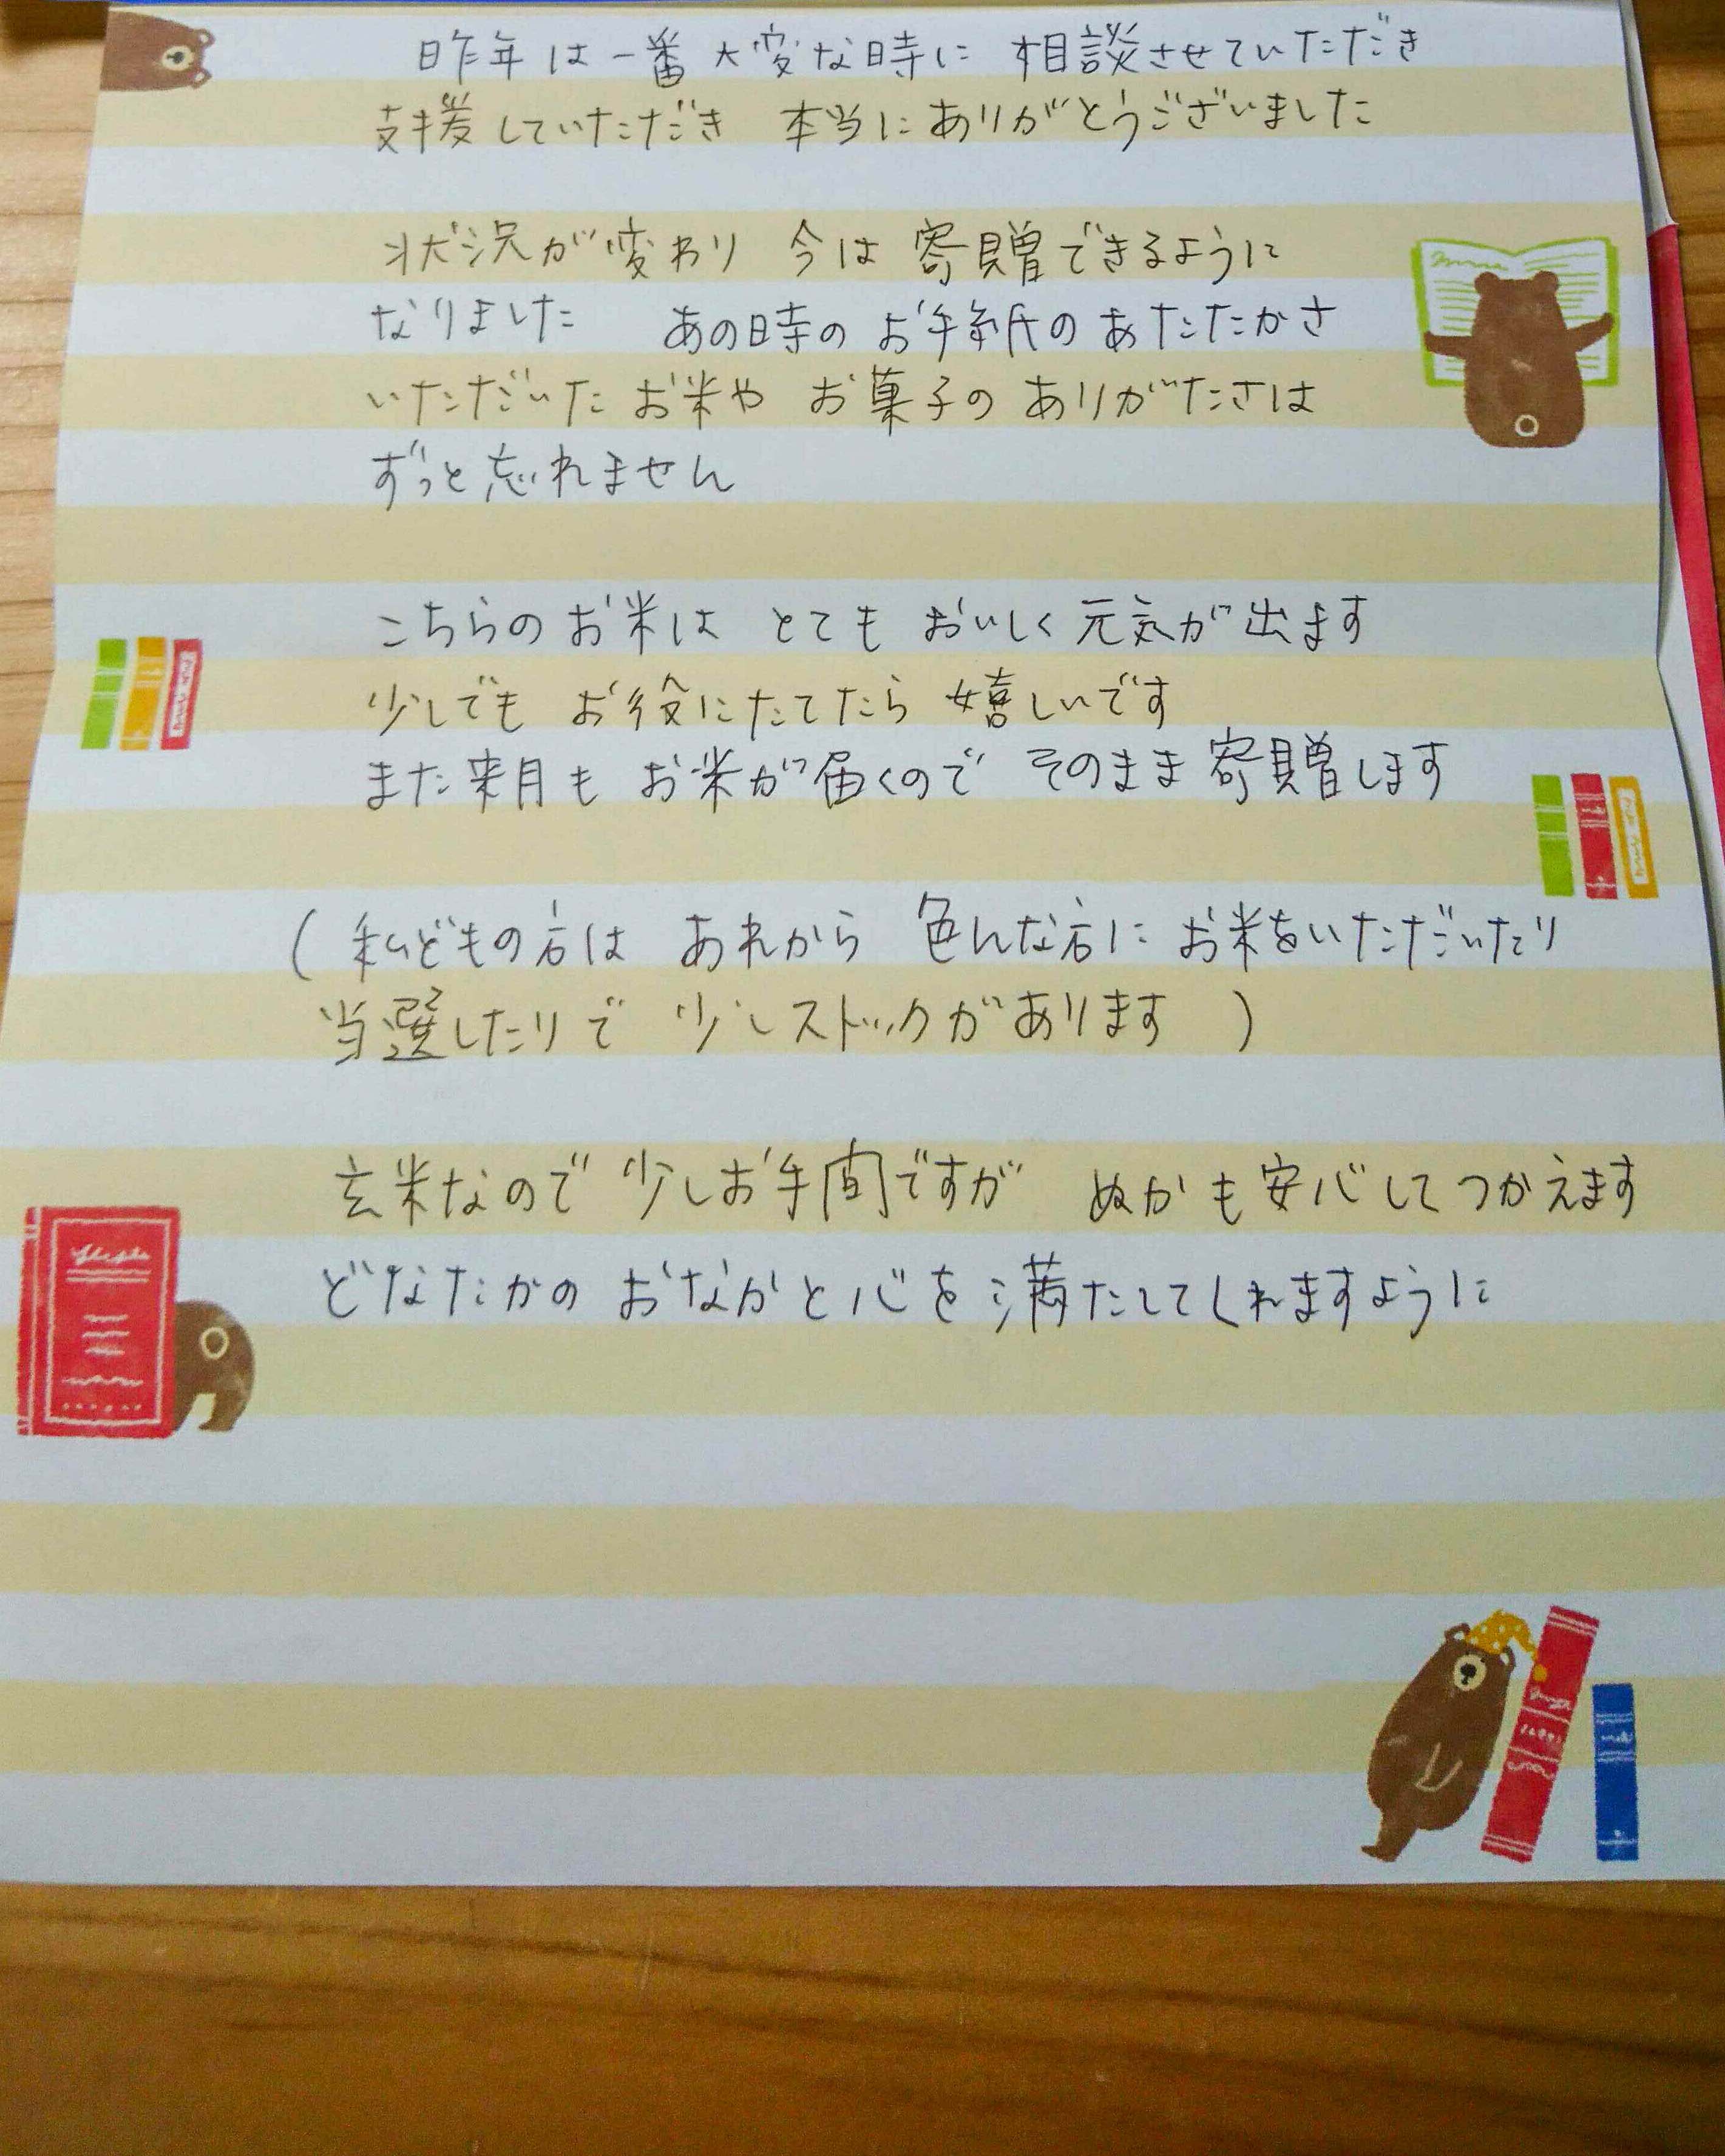 昨年は一番大変な時に 相談させていただき
支援していただき 本当にありがとうございました
状況が変わり 今は寄贈できるように
なりました あの時のお手紙のあたたかさ
いただいたお米や お菓子のありがたさは
ずっと忘れません
こちらのお米は とてもおいしく元気が出ます
少しでも お役にたてたら嬉しいです
また来月も お米が届くので そのまま寄贈します
(私どもの方は あれから 色んな方にお米をいただいたり
当選したりで 少しストックがあります)
玄米なので少しお手間ですが ぬかも安心してつかえます
どなたかの おなかと心を満たしてくれますように